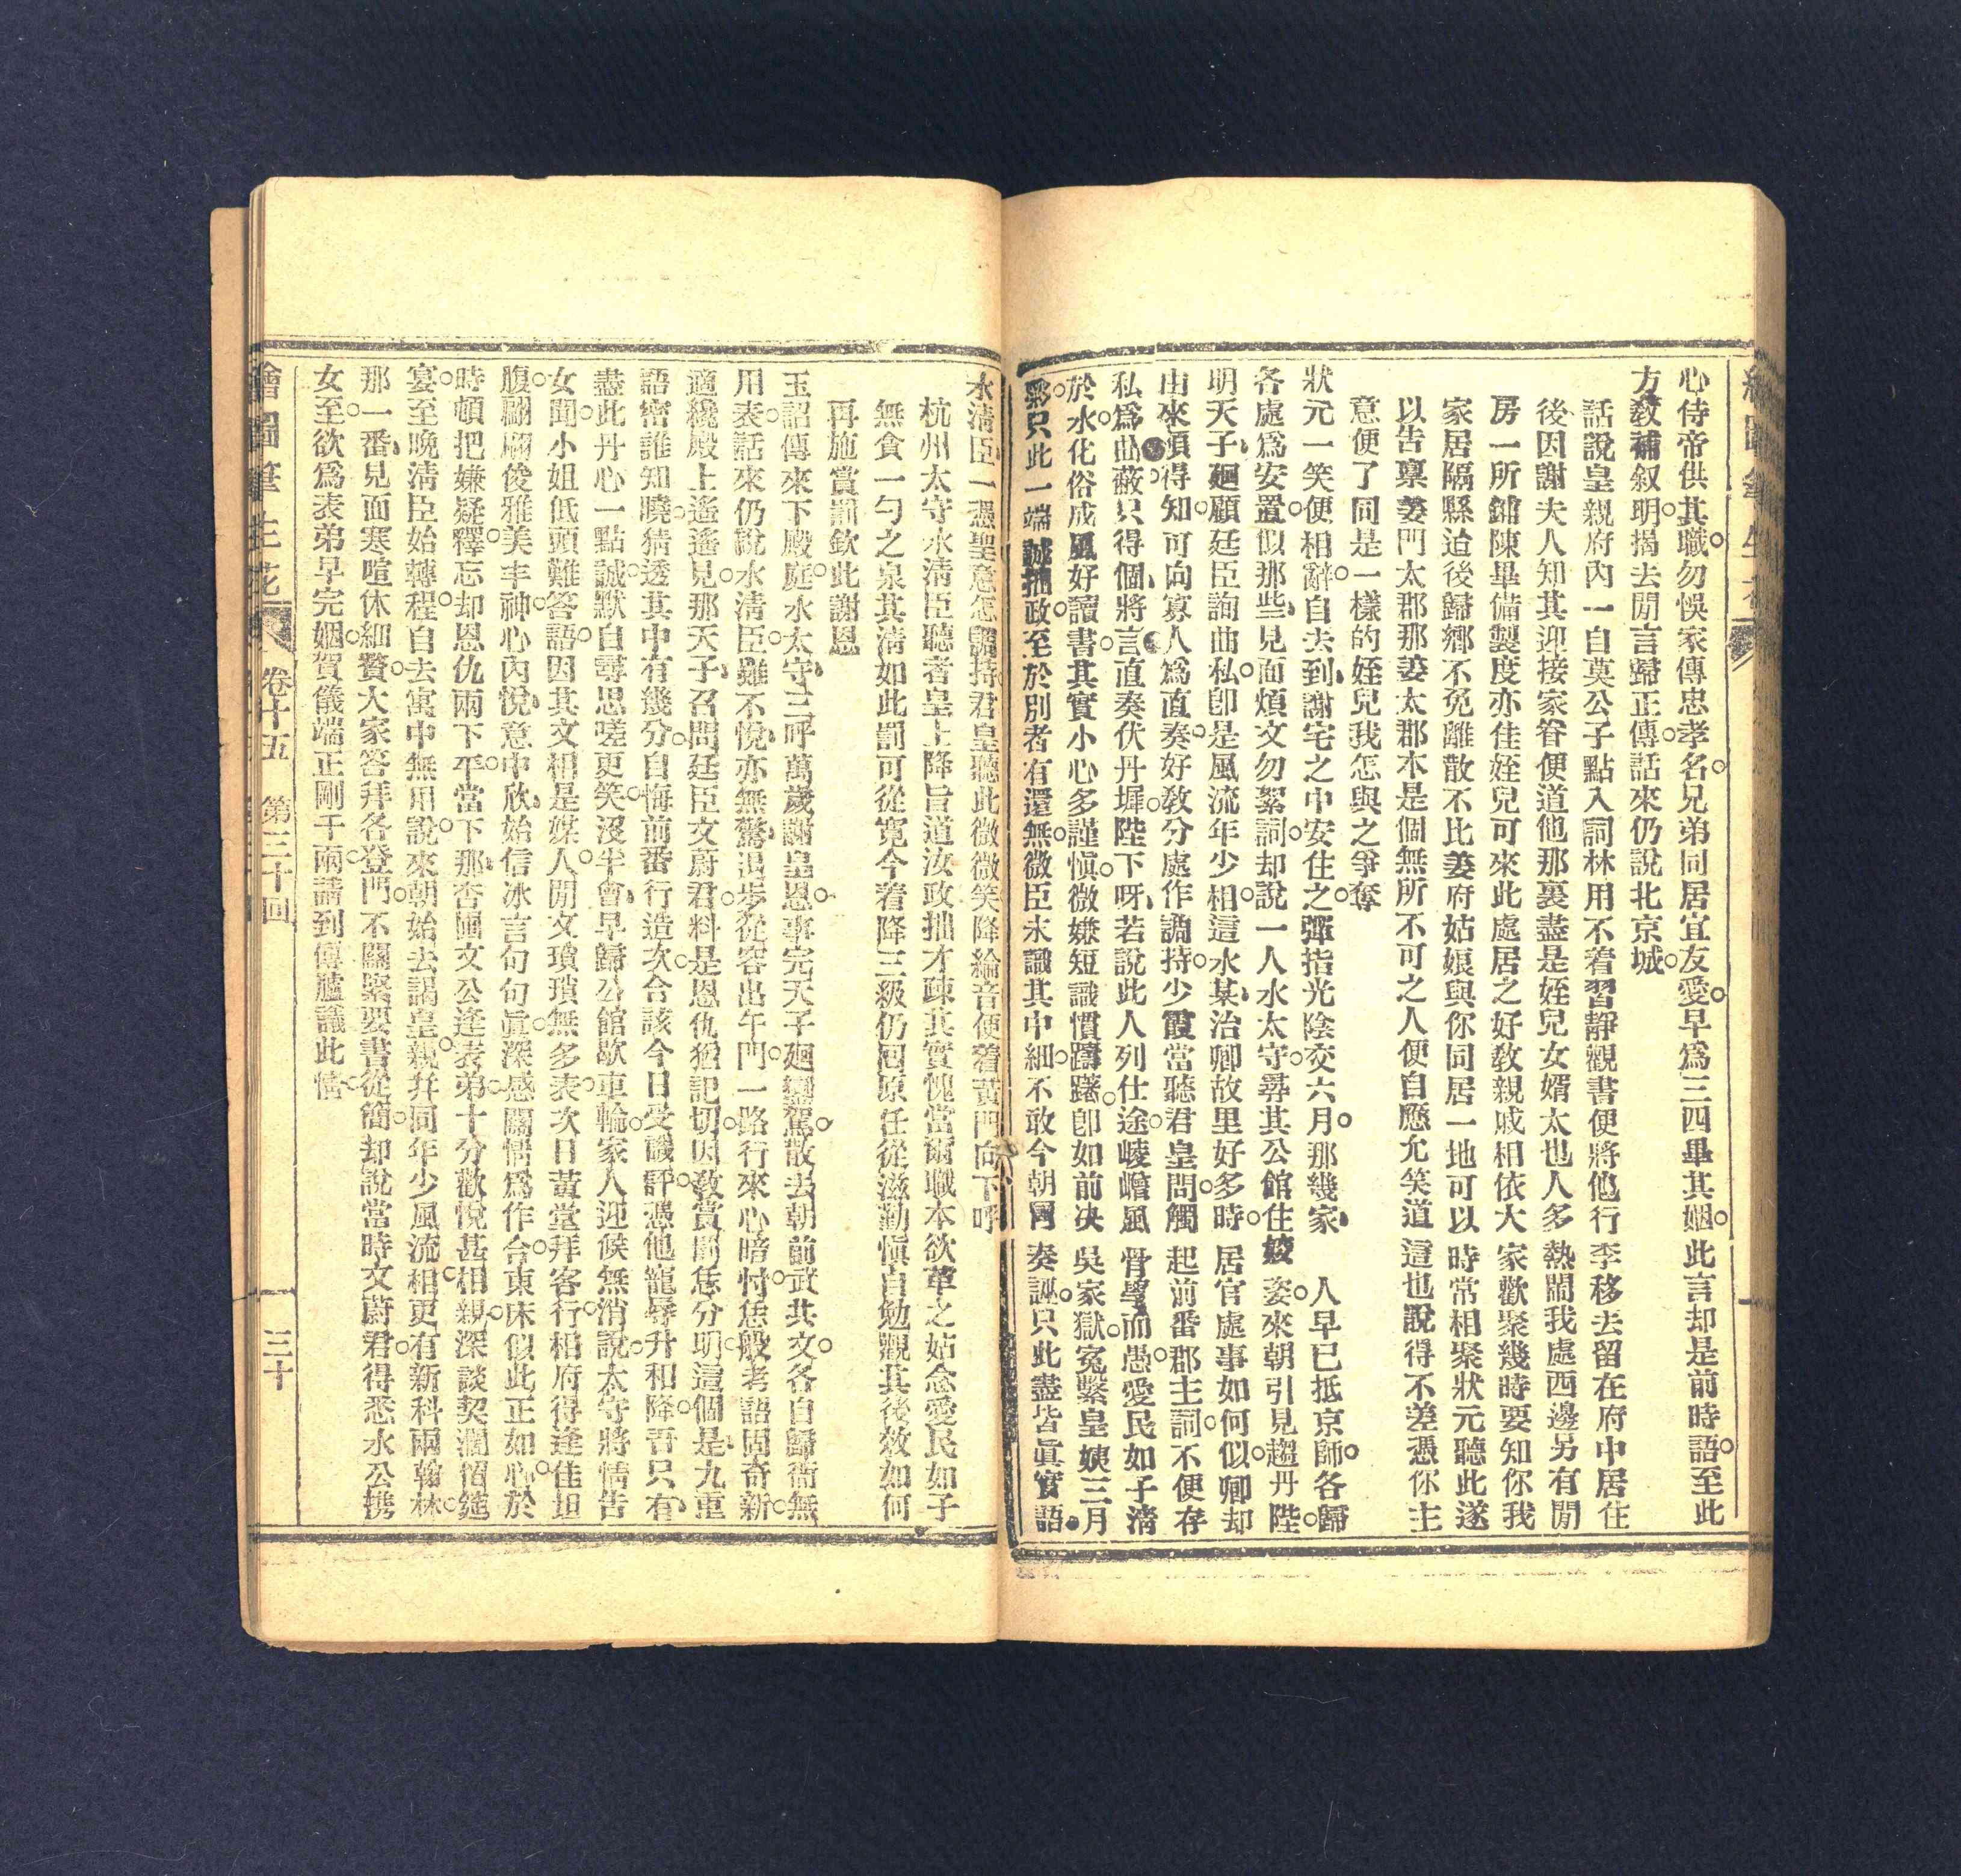 心侍帝供其職勿悞家傳忠孝名兄弟同居宜友愛早爲三四畢其姻此言却是前時語至此
方敎補叙明揭去閒言歸正傳話來仍說北京城
話說皇親府內一自莫公子點入詞林用不着習靜觀書便將他行李移去留在府中居住
後因謝夫人知其迎接家眷便道他那裏盡是姪兒女婿太也人多熱鬧我處西邊另有閒
房一所鋪陳畢備製度亦佳姪兒可來此處居之好敎親戚相依大家歡聚幾時要知你我
家居隔縣迨後歸鄉不免離散不比姜府姑娘與你同居一地可以時常相聚狀元聽此遂
以告稟姜門太郡那姜太郡本是個無所不可之人便自應允笑道這也說得不差憑你主
意便了同是一樣的姪兒我怎與之爭奪
狀元一笑便相辭自去到謝宅之中安住之彈指光陰交六月那幾家人早已抵京師各歸
各處爲安置似那些見面煩文勿絮詞却說一人水太守尋其公館住姣姿來朝引見趨丹陛
明天子廻顧廷臣詢曲私卽是風流年少相這水某治卿故里好多時居官處事如何似卿却
由來須得知可向寡人爲直奏好敎分處作調持少霞當聽君皇問觸起前番郡主詞不便存
私爲曲蔽只得個將言直奏伏丹墀陛下呀若說此人列仕途崚嶒風骨學而愚愛民如子淸
於水化俗成風好讀書其實小心多謹愼微嫌短識慣躊躇卽如前決吳家獄寃繫皇姨三月
夥只此一端誠拙政至於別者有還無微臣未識其中細不敢今朝罔奏誣只此盡皆眞實語
水淸臣一憑聖意怎調持君皇聽此微微笑降綸音便着黃門向下呼
杭州太守水淸臣聽者皇上降旨道汝政拙才疎其實愧當爾職本欲革之姑念愛民如子
無食一勺之泉其淸如此罰可從寬今着降三級仍回原任從滋勤愼自勉觀其後效如何
再施賞罰欽此謝恩
玉詔傳來下殿庭水太守三呼萬歲謝皇恩事完天子廻鑾駕散去朝前武共文各自歸衙無
用表話來仍說水淸臣雖不悅亦無驚退步從容出午門一路行來心暗忖恁般考語固奇新
適纔殿上遙遙見那天子召問廷臣文蔚君料是恩仇猶記切因敎賞罰恁分明這個是九重
語密誰知曉猜透其中有幾分自悔前番行造次合該今日受譏評憑他寵辱升和降吾只有
盡此丹心一點誠默自尋思嗟更笑沒半會早歸公館歇車輪家人迎候無消說太守將情告
女聞小姐低頭難答語因其文相是媒人閒文瑣瑣無多表次日黃堂拜客行相府得逢佳坦
腹翩翩俊雅美丰神心內悅意中欣始信冰言句句眞深感關情爲作合東床似此正如心於
時頓把嫌疑釋忘却恩仇兩下平當下那杏園文公逢表弟十分歡悅甚相親深談契濶留筵
宴至晚淸臣始轉程自去寓中無用說來朝始去謁皇親幷同年少風流相更有新科兩翰林
那一番見面寒喧休細贅大家答拜各登門不關緊要書從簡却說當時文蔚君得悉水公携
女至欲爲表弟早完姻賀儀端正剛千兩請到傳臚議此情
繪圖筆生花 卷十五 第三十回 三十